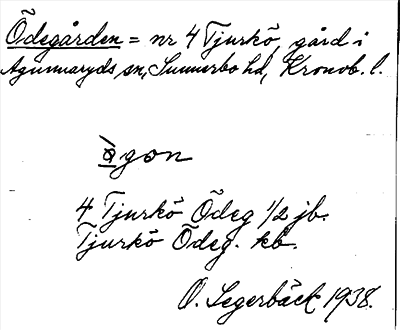 Ödegården = nr 4 Tjurkö, gård i
Agunnaryds sn, Sunnerbo hd, Kronob. l.
ögon
4 Tjurkö Ödeg 1/2 jb.
Tjurkö Ödeg. kb.
O. Segerbäck 1938.